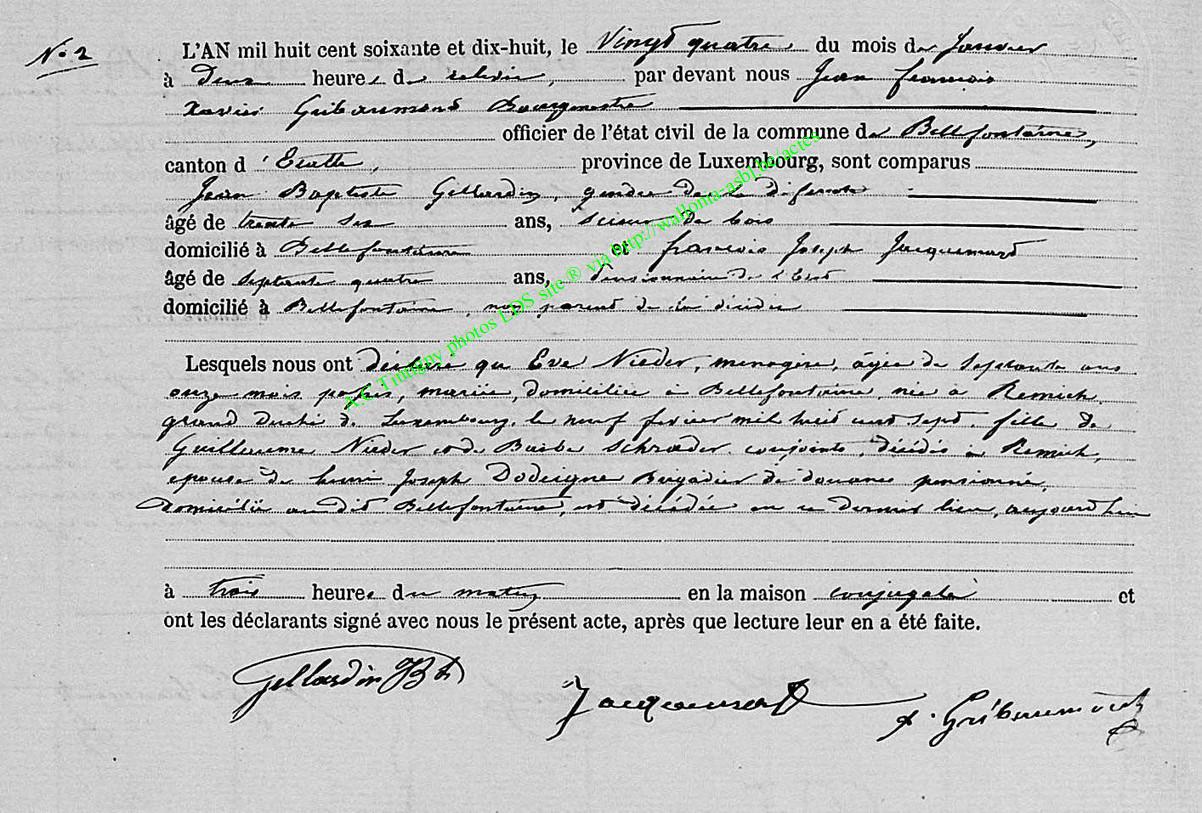 No. 2
L'AN mil huit cent soixante et dix-huit, le Vingt quatre du mois de Janvier
à Deux heures de relevée, par devant nous Jean François
Xavier Gribaumont Bourgmestre
officier de l'état civil de la commune de Bellefontaine,
canton d'Etalle, province de Luxembourg, sont comparus
Jean Baptiste Gellardin, gendre de la défunte
âgé de trente six ans, scieur de bois
domicilié à Bellefontaine et françois Joseph Jacquemart
âgé de septante quatre ans, Pensionnaire de l'Etat
domicilié à Bellefontaine, non parent de la décédée
Lesquels nous ont déclaré qu Eve Nieder, menagère, âgée de Septante ans
onze mois passés, mariée, domiciliée à Bellefontaine, née à Remich
grand duché de Luxembourg, le neuf fevrier mil huit cent sept, fille de
Guillaume Nieder et de Barbe Schrœder conjoints, décédés à Remich,
epouse de henri Joseph Dodeigne Brigadier de douanes pensionné,
Domicilié audit Bellefontaine, est décédée en ce dernier lieu, aujourd'hui
à trois heures du matin en la maison conjugale et
ont les déclarants signé avec nous le présent acte, après que lecture leur en a été faite.
Gellardin Bte
Jacquemart
Gribaumont
AC Tintigny photos LDS site ® via http://wallonia-asbl.be/actes